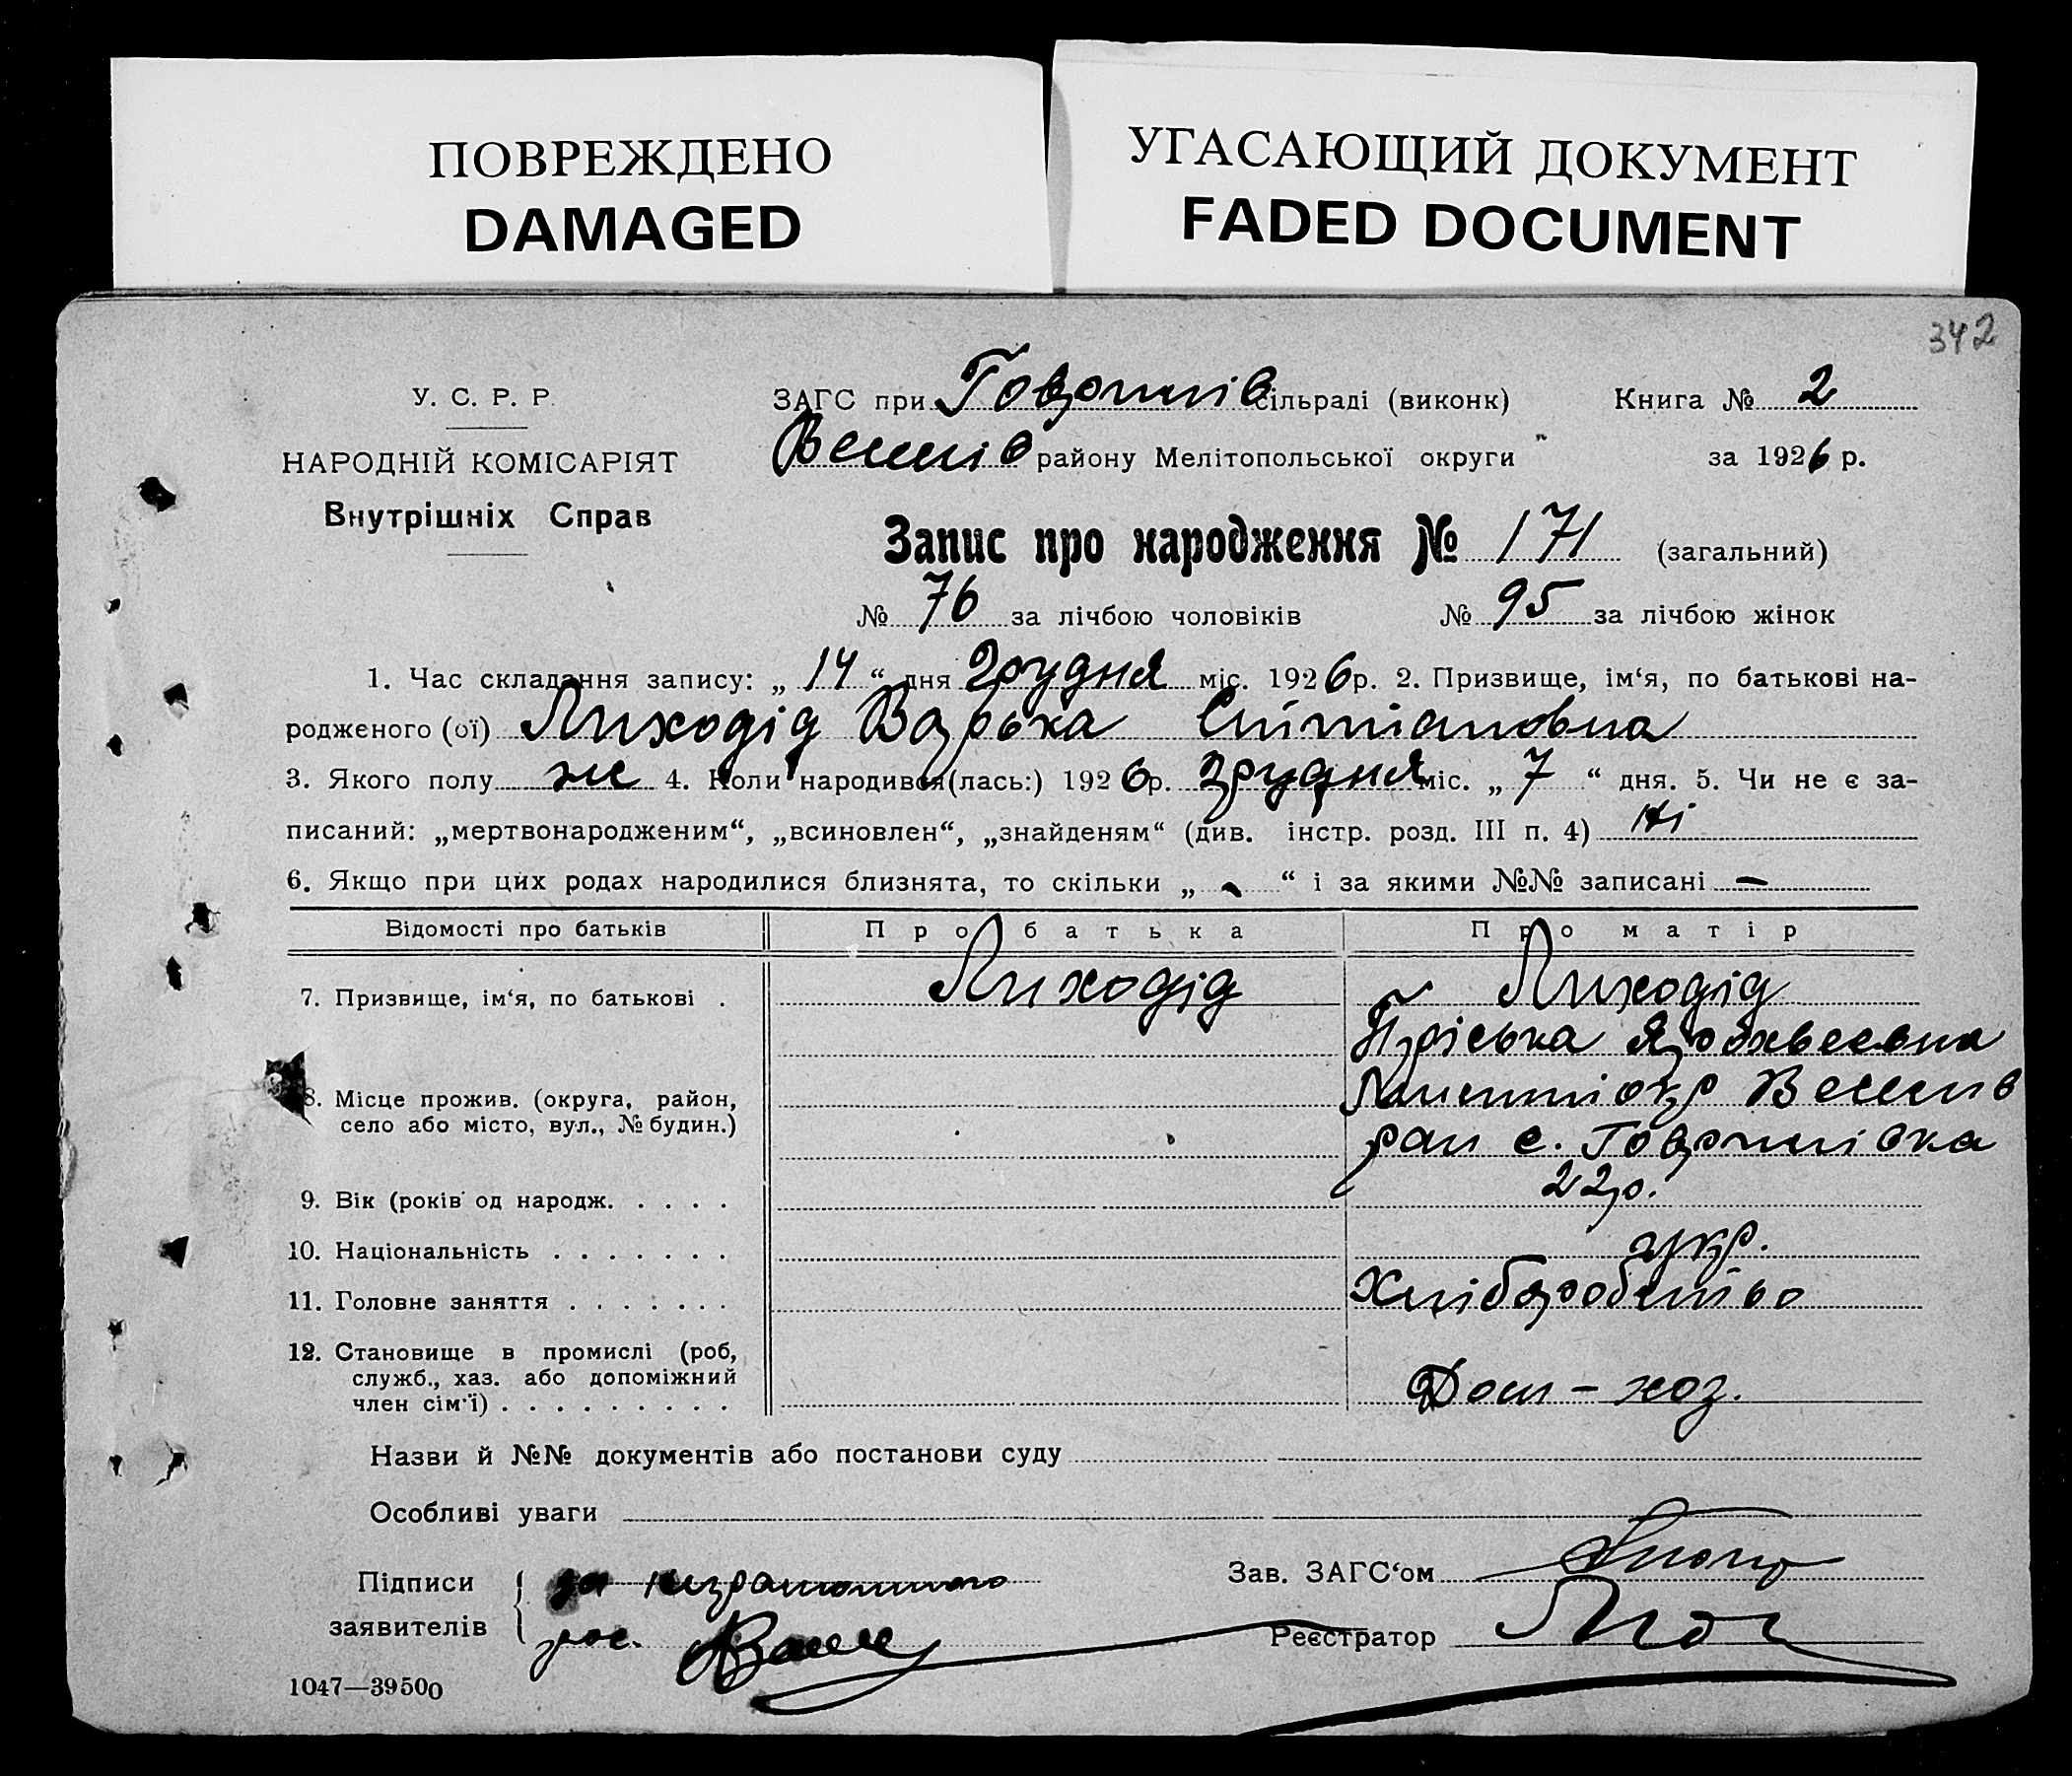 ПОВРЕЖДЕНО
DAMAGED
УГАСАЮЩИЙ ДОКУМЕНТ
FADED DOCUMENT
342
У. С. Р. Р.
НАРОДНІЙ КОМІСАРІЯТ
Внутрішніх Справ
ЗАГС при Гаврилів сільраді (виконк) Книга № 2
району Мелітопольської округи за 1926 р.
Запис про народження № 171 (загальний)
№ 76 за лічбою чоловіків № 95 за лічбою жінок
1. Час складання запису: „ 14 “ дня Грудня міс. 1926 р. 2. Призвище, ім‘я, по батькові на-
родженого (ої) Лиходід Варька
3. Якого полу ж 4. Коли народився(лась:) 1926 р. Грудня міс. „ 7 “ дня. 5. Чи не є за-
писаний: „мертвонародженим“, „всиновлен“, „знайденям“ (див. інстр. розд. III п. 4) Ні
6. Якщо при цих родах народилися близнята, то скільки „ - “ і за якими №№ записані —
Відомості про батьків Про батька Про матір
7. Призвище, ім‘я, по батькові . Лиходід Лиходід
Пріська
8. Місце прожив. (округа, район,
село або місто, вул., № будин.)
рай с.
9. Вік (років од народж. . . . . 22 р.
10. Національність . . . . . . . укр.
11. Головне заняття . . . . . . . Хліборобство
12. Становище в промислі (роб,
служб., хаз. або допоміжний
член сім‘ї) . . . . . . . . . Дом - хоз.
Назви й №№ документів або постанови суду
Особливі уваги
Підписи
заявителів
за
Зав. ЗАГС‘ом
Реєстратор
1047—39500